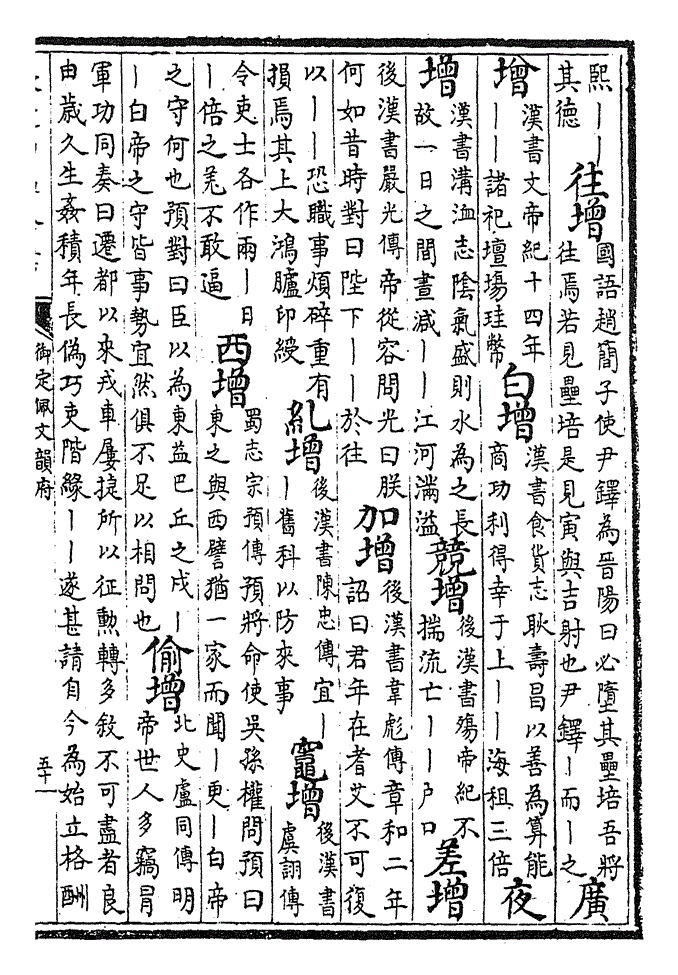 熙丨丨
其德
往增
國語趙簡子使尹鐸為晉陽曰必墮其壘培吾將
往焉若見壘培是見寅與吉射也尹鐸丨而丨之
廣
增
漢書文帝紀十四年
丨丨諸祀壇塲珪幣
白增
漢書食貨志耿壽昌以善為算能
商功利得幸于上丨丨海租三倍
夜
增
漢書溝洫志陰氣盛則水為之長
故一日之間晝減丨丨江河滿溢
競增
後漢書殤帝紀不
揣流亡丨丨戶口
差增
後漢書嚴光傳帝從容問光曰朕
何如昔時對曰陛下丨丨於往
加增
後漢書韋彪傳章和二年
詔曰君年在耆艾不可復
以丨丨恐職事煩碎重有
損焉其上大鴻臚印綬
糺增
後漢書陳忠傳宜丨
丨舊科以防來事
竈增
後漢書
虞詡傳
令吏士各作兩丨日
丨倍之羌不敢逼
西增
蜀志宗預傳預將命使吳孫權問預曰
東之與西譬猶一家而聞丨更丨白帝
之守何也預對曰臣以為東益巴丘之戍丨
丨白帝之守皆事勢宜然俱不足以相問也
偷增
北史盧同傳明
帝世人多竊冒
軍功同奏曰遷都以來戎車屢捷所以征勲轉多敘不可盡者良
由歲久生姦積年長偽巧吏階緣丨丨遂甚請自今為始立格酬
御定佩文韻府
五十一